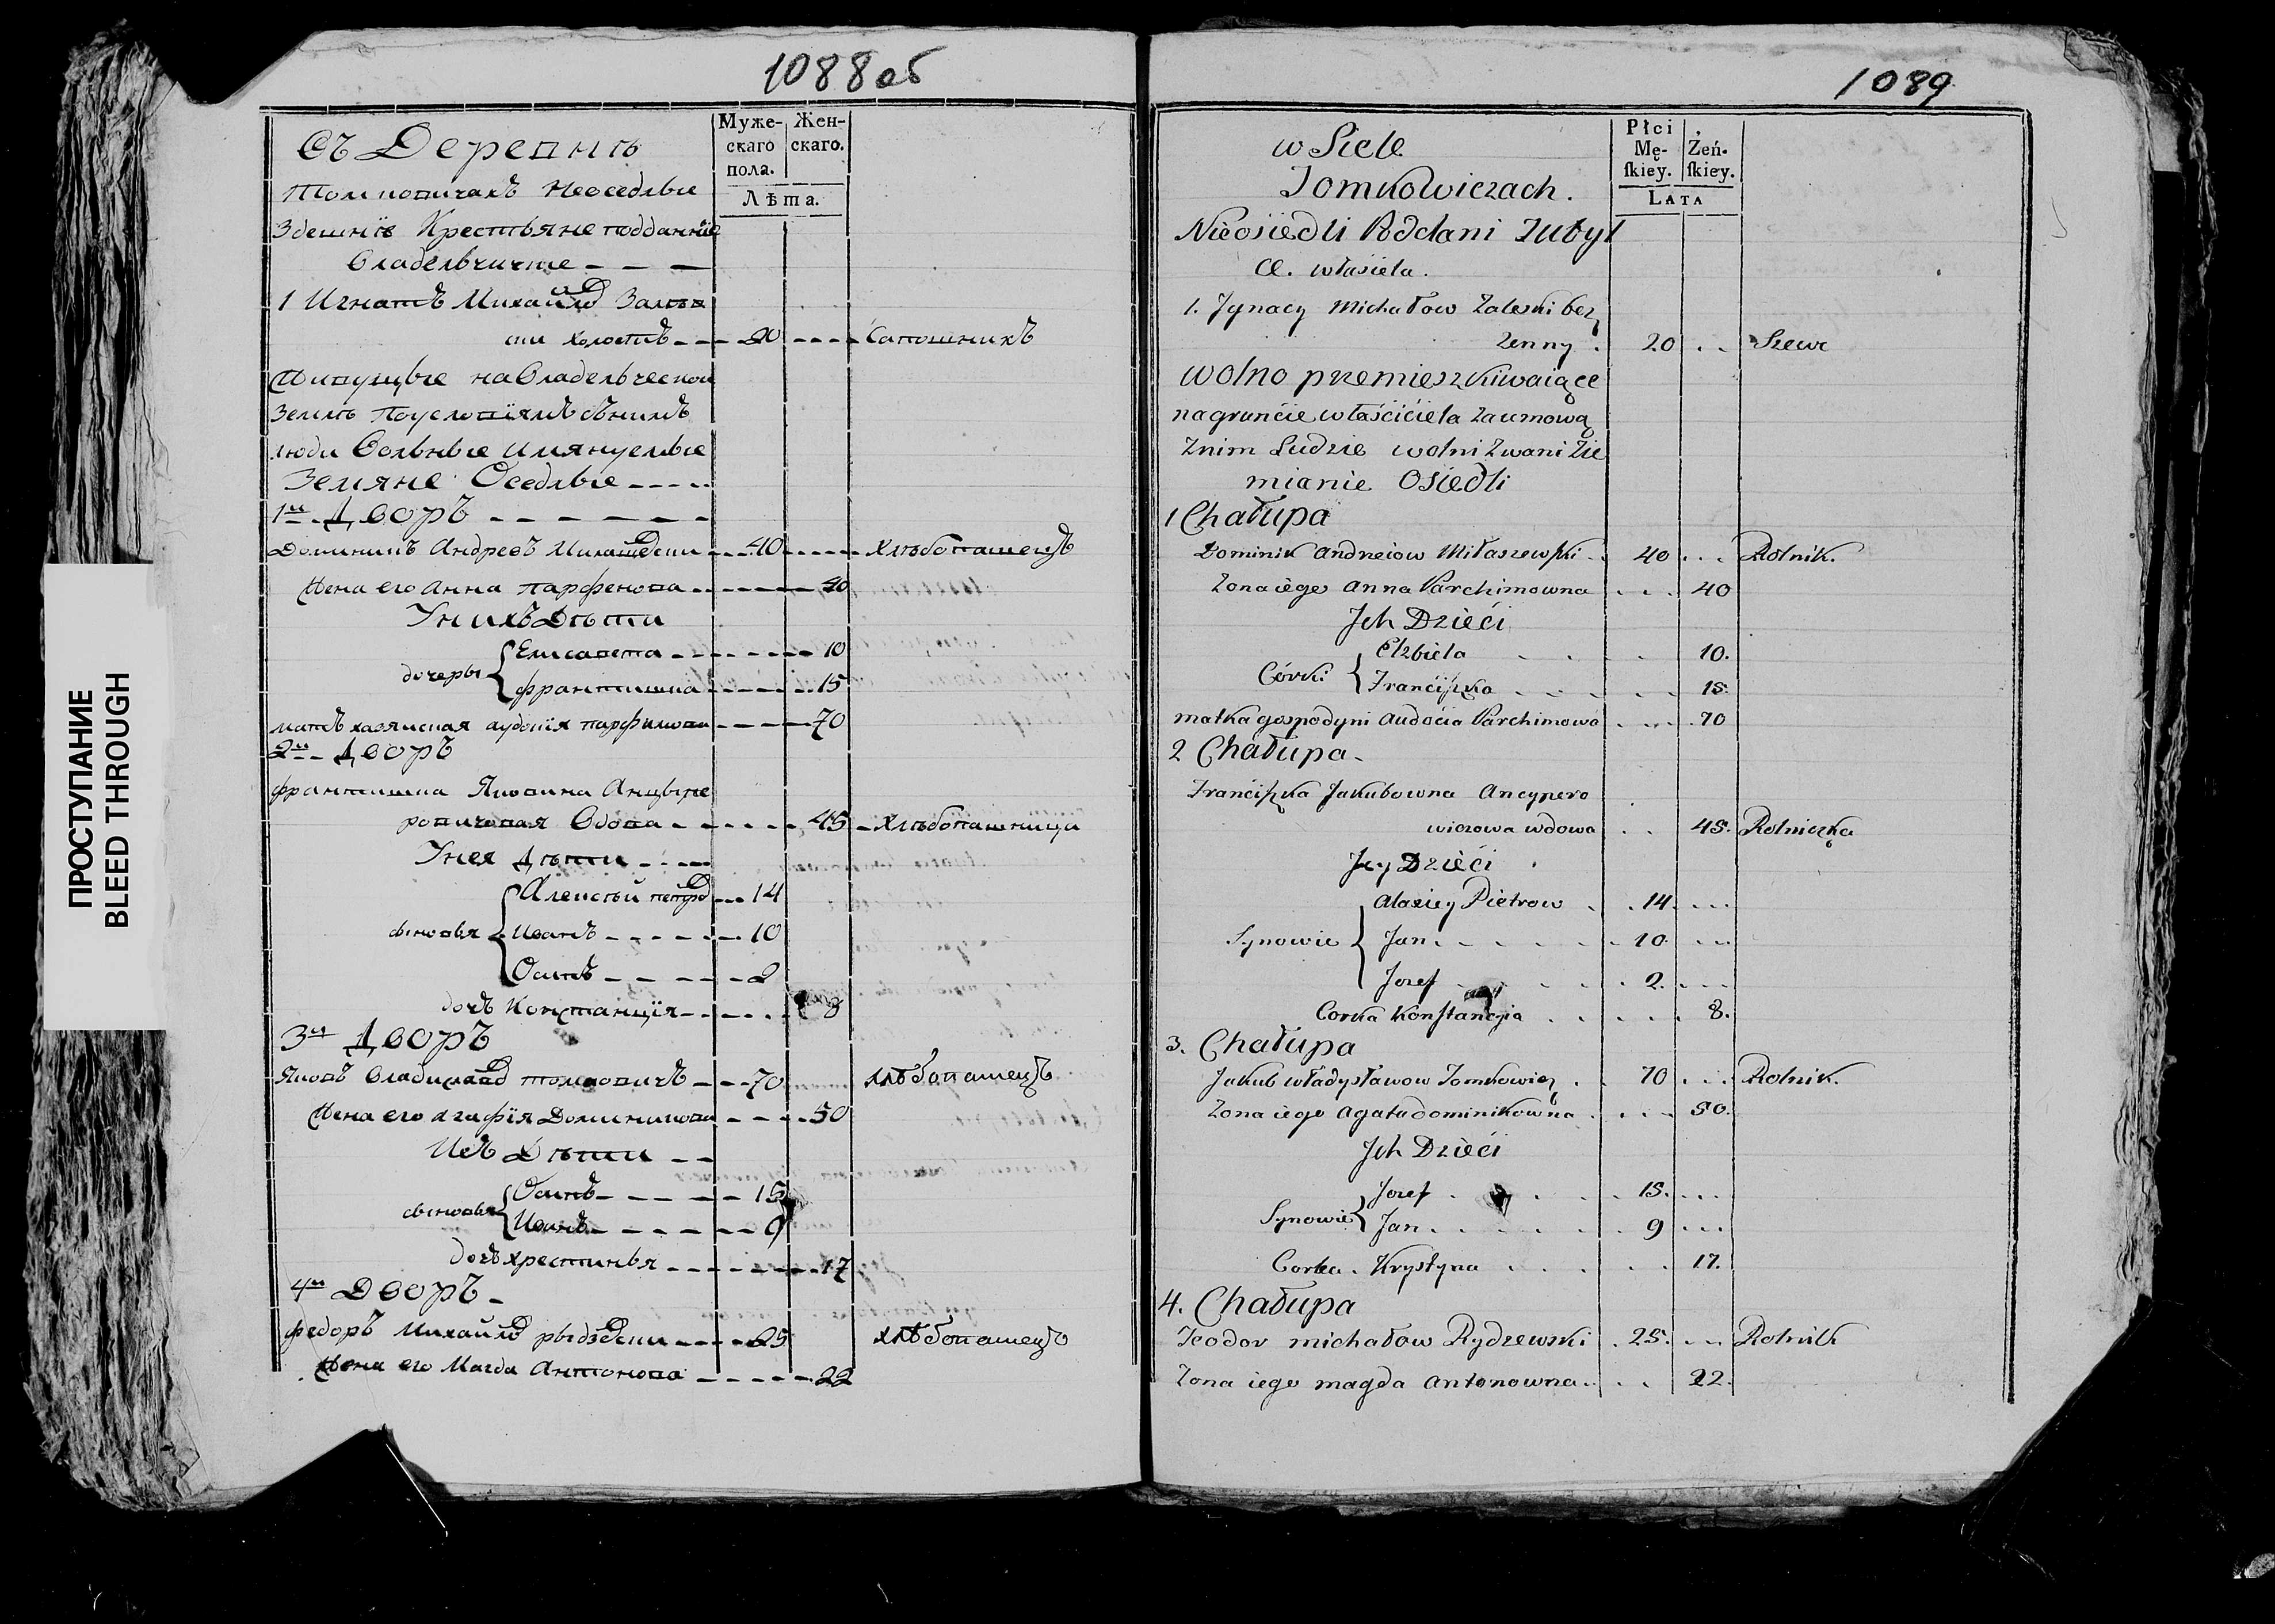 1088 об
Мужескаго пола.
Женскаго.
Лѣта.
Въ Деревнѣ
Томковичахъ Неоседлые
Здешнiе Крестьяне подданные
Владельчиские
1 Игнатъ Михайловъ Залѣв
ски холостъ 20 Сапошникъ
Живущые на Владельческой
Землѣ По условiямъ съ нимъ
люди Вольные имянуемые
Земяне Оседлые
1й Дворъ
Доминикъ Андреевъ Милашевски 40 хлѣбопашецъ
Жена его Анна Парфенова 40
У них Дѣти
дочеры Елисавета 10
Франтишка 15
мать хозяиская Аудоцiя Парфимова 70
2й Дворъ
Франтишка Яковина Анцыпе
ровичовая Вдова 45 хлѣбопашница
У нея Дѣти
сыновья Алексѣй Петровъ 14
Иванъ 10
Осипъ 2
дочъ Констанцiя 8
3й Дворъ
Яковъ Владиславовъ Томковичъ 70 хлѣбопашецъ
Жена его Агафiя Доминикова 50
Ихъ Дѣти
сыновья Осипъ 15
Иванъ 9
дочъ Хрестинья 17
4й Дворъ
Федоръ Михайловъ Рыдзевски 25 хлѣбопашецъ
Жена его Магда Антонова 22
1089
Płci Męſkiey.
Żeńſkiey.
LATA
w Siele
Tomkowiczach.
Nieosiedli Poddani Tutył
ce. własiela.
1. Jgnacy Michałow Zaleski bez
żenny 20 Szewc
Wolno przemieszkiwaiące
na grunćie właśćićiela za umową
z nim Ludzie wolni zwani Zie
mianie Osiedli
1 Chałupa
Dominik Andrzeiow Miłaszewſki 40 Rolnik.
Żona iego Anna Parchimowna 40
Jch Dzieći
Córki Elzbieta 10.
Franćiſzka 15.
matka gospodyni Audoćia Parchimowa 70
2 Chałupa
Franćiſzka Jakubowna Ancypero
wiczowa wdowa 45. Rolniczka
Jey Dzieći
Synowie Alexiey Pietrow 14
Jan 10.
Jozef 2.
Corka Konſtancja 8.
3. Chałupa
Jakub władysławow Tomkowicz 70 Rolnik.
Żona iego Agata dominikowna 50.
Jch Dzieći
Synowie Jozef 15.
Jan 9
Corka Krystyna 17.
4. Chałupa
Teodor michałow Rydzewski 25. Rolnik
Żona iego magda Antonowna 22.
ПРОСТУПАНИЕ
BLEED THROUGH